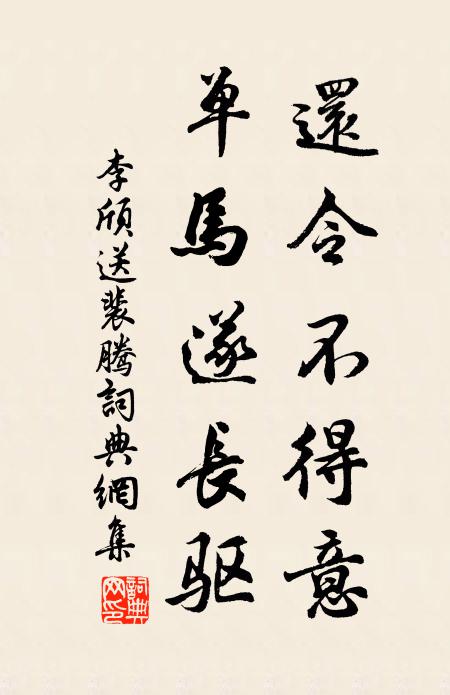 還令不得意
单馬遂長驱
李颀送裴騰詞典網集
詞典网印